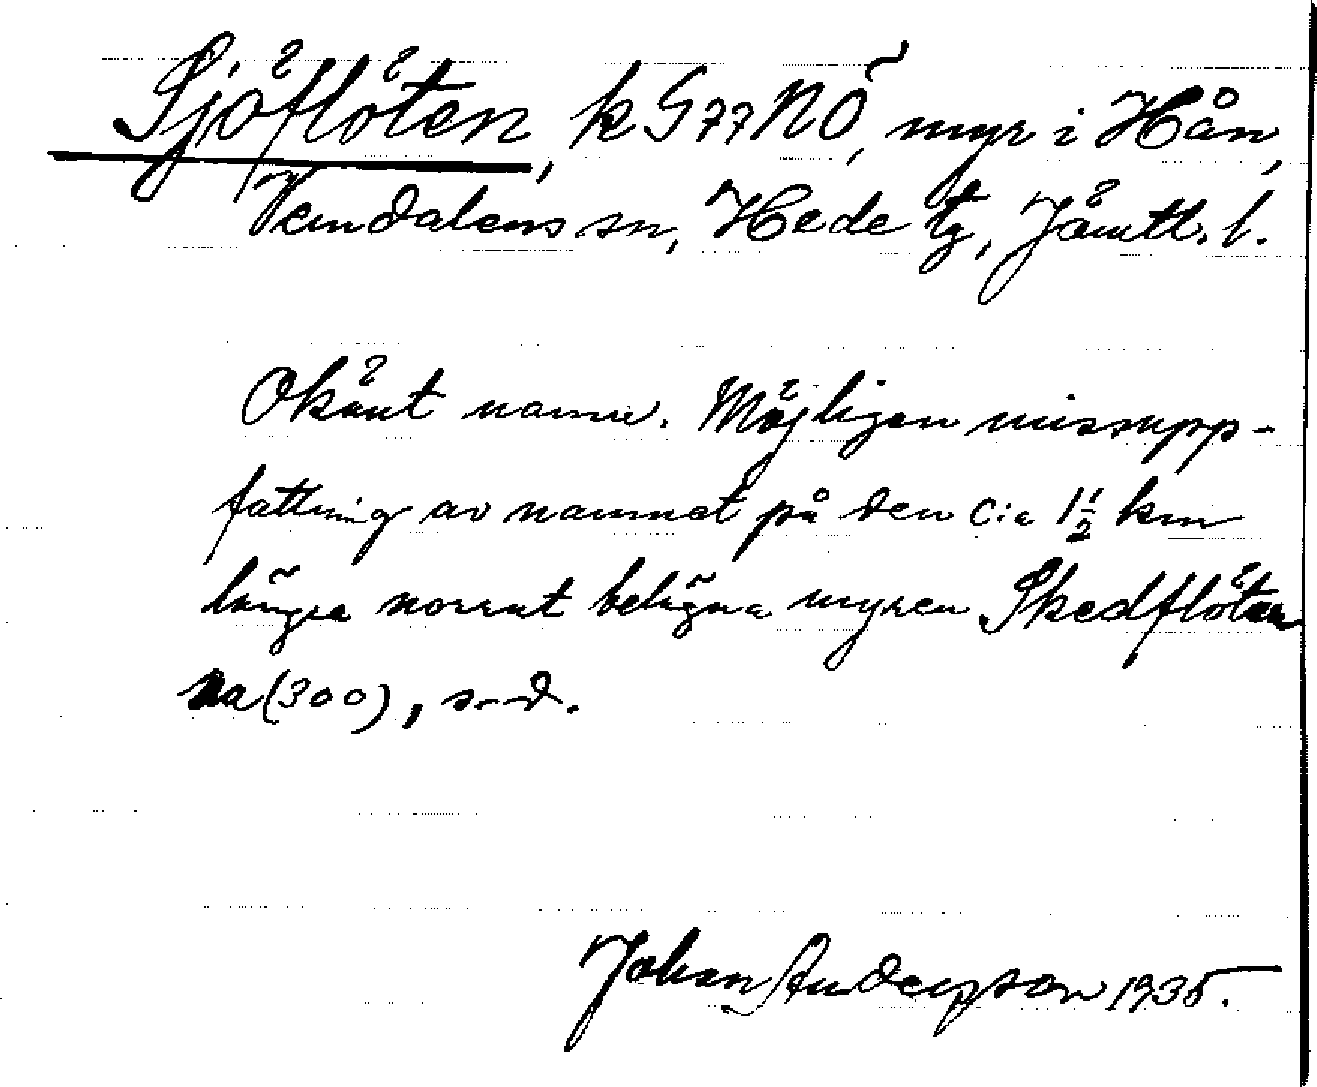 Sjöflöten, k G77NÖ, myr i Hån,
Vemdalens sn, Hede tg, Jämtl. l.
Okänt namn. Möjligen missupp-
fattning av namnet på den c:a 1½ km
längre norrut belägna myren Skedflöten
na (300), s.d.
Johan Anderpson 1935.